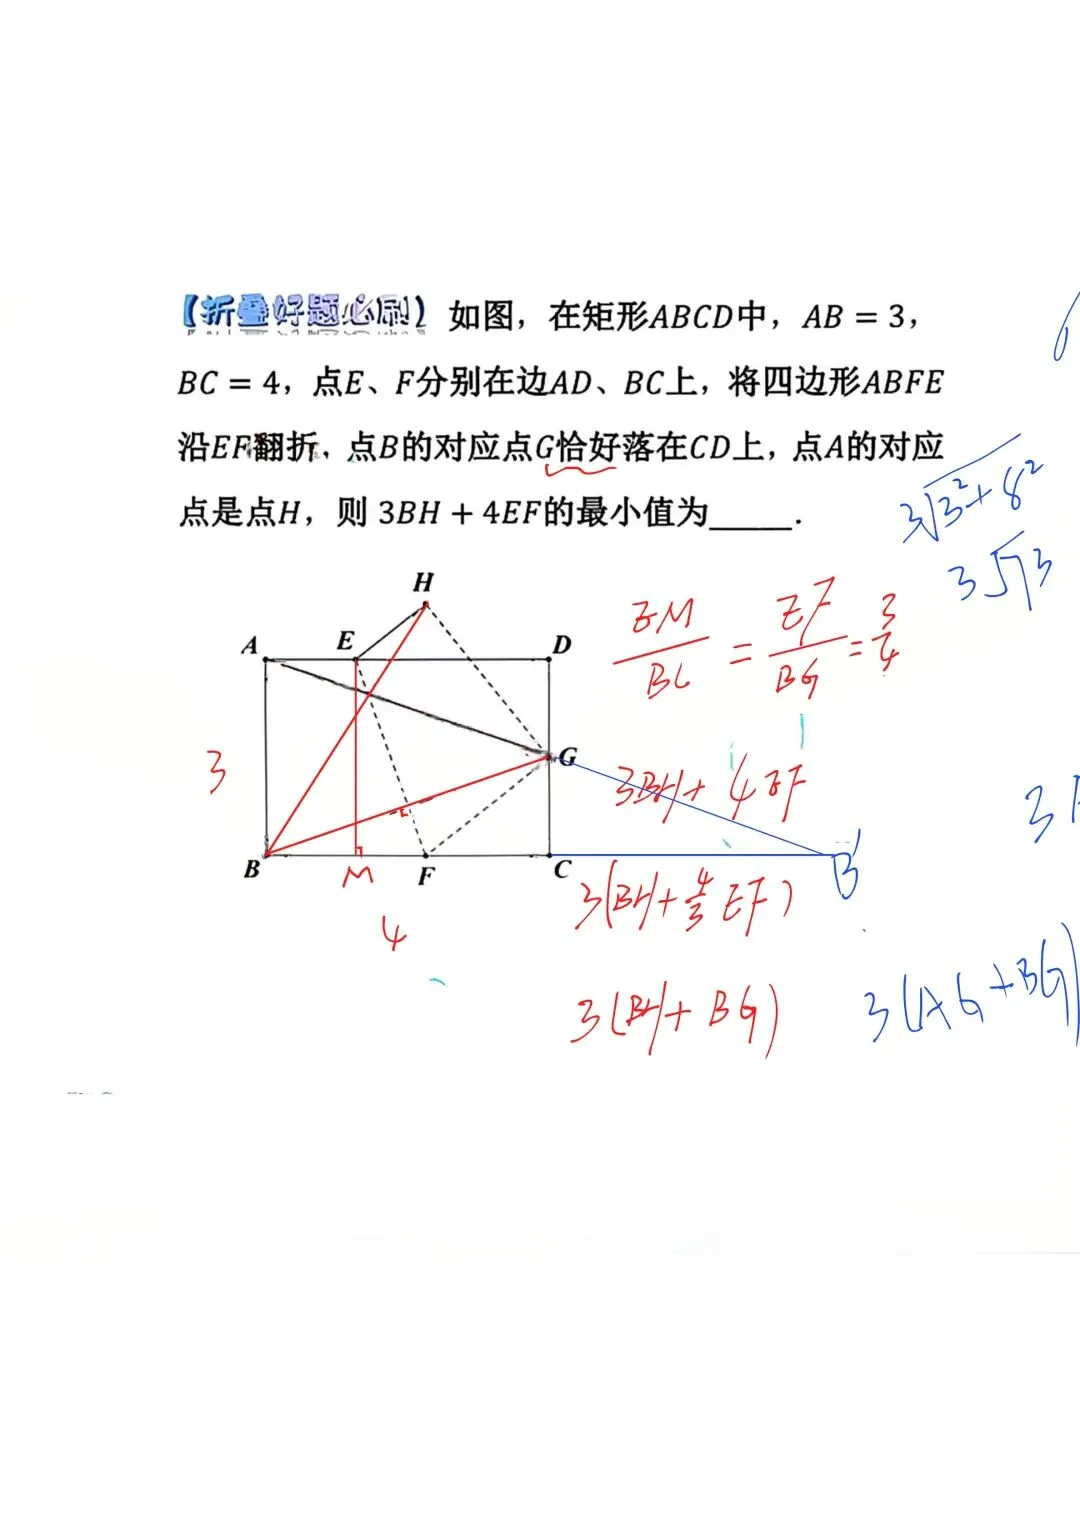 【折叠好题必刷】如图，在矩形ABCD中，AB = 3，
BC = 4，点E、F分别在边AD、BC上，将四边形ABFE
沿EF翻折，点B的对应点G恰好落在CD上，点A的对应
点是点H，则 3BH + 4EF的最小值为_____.
3√3²+8²
3√73
H
A E D
G
B M F C B'
3
4
EM/BC = EF/BG = 3/4
3BH + 4EF
3(BH + 4/3 EF)
3(BH + BG)
3(AG + BG)
3